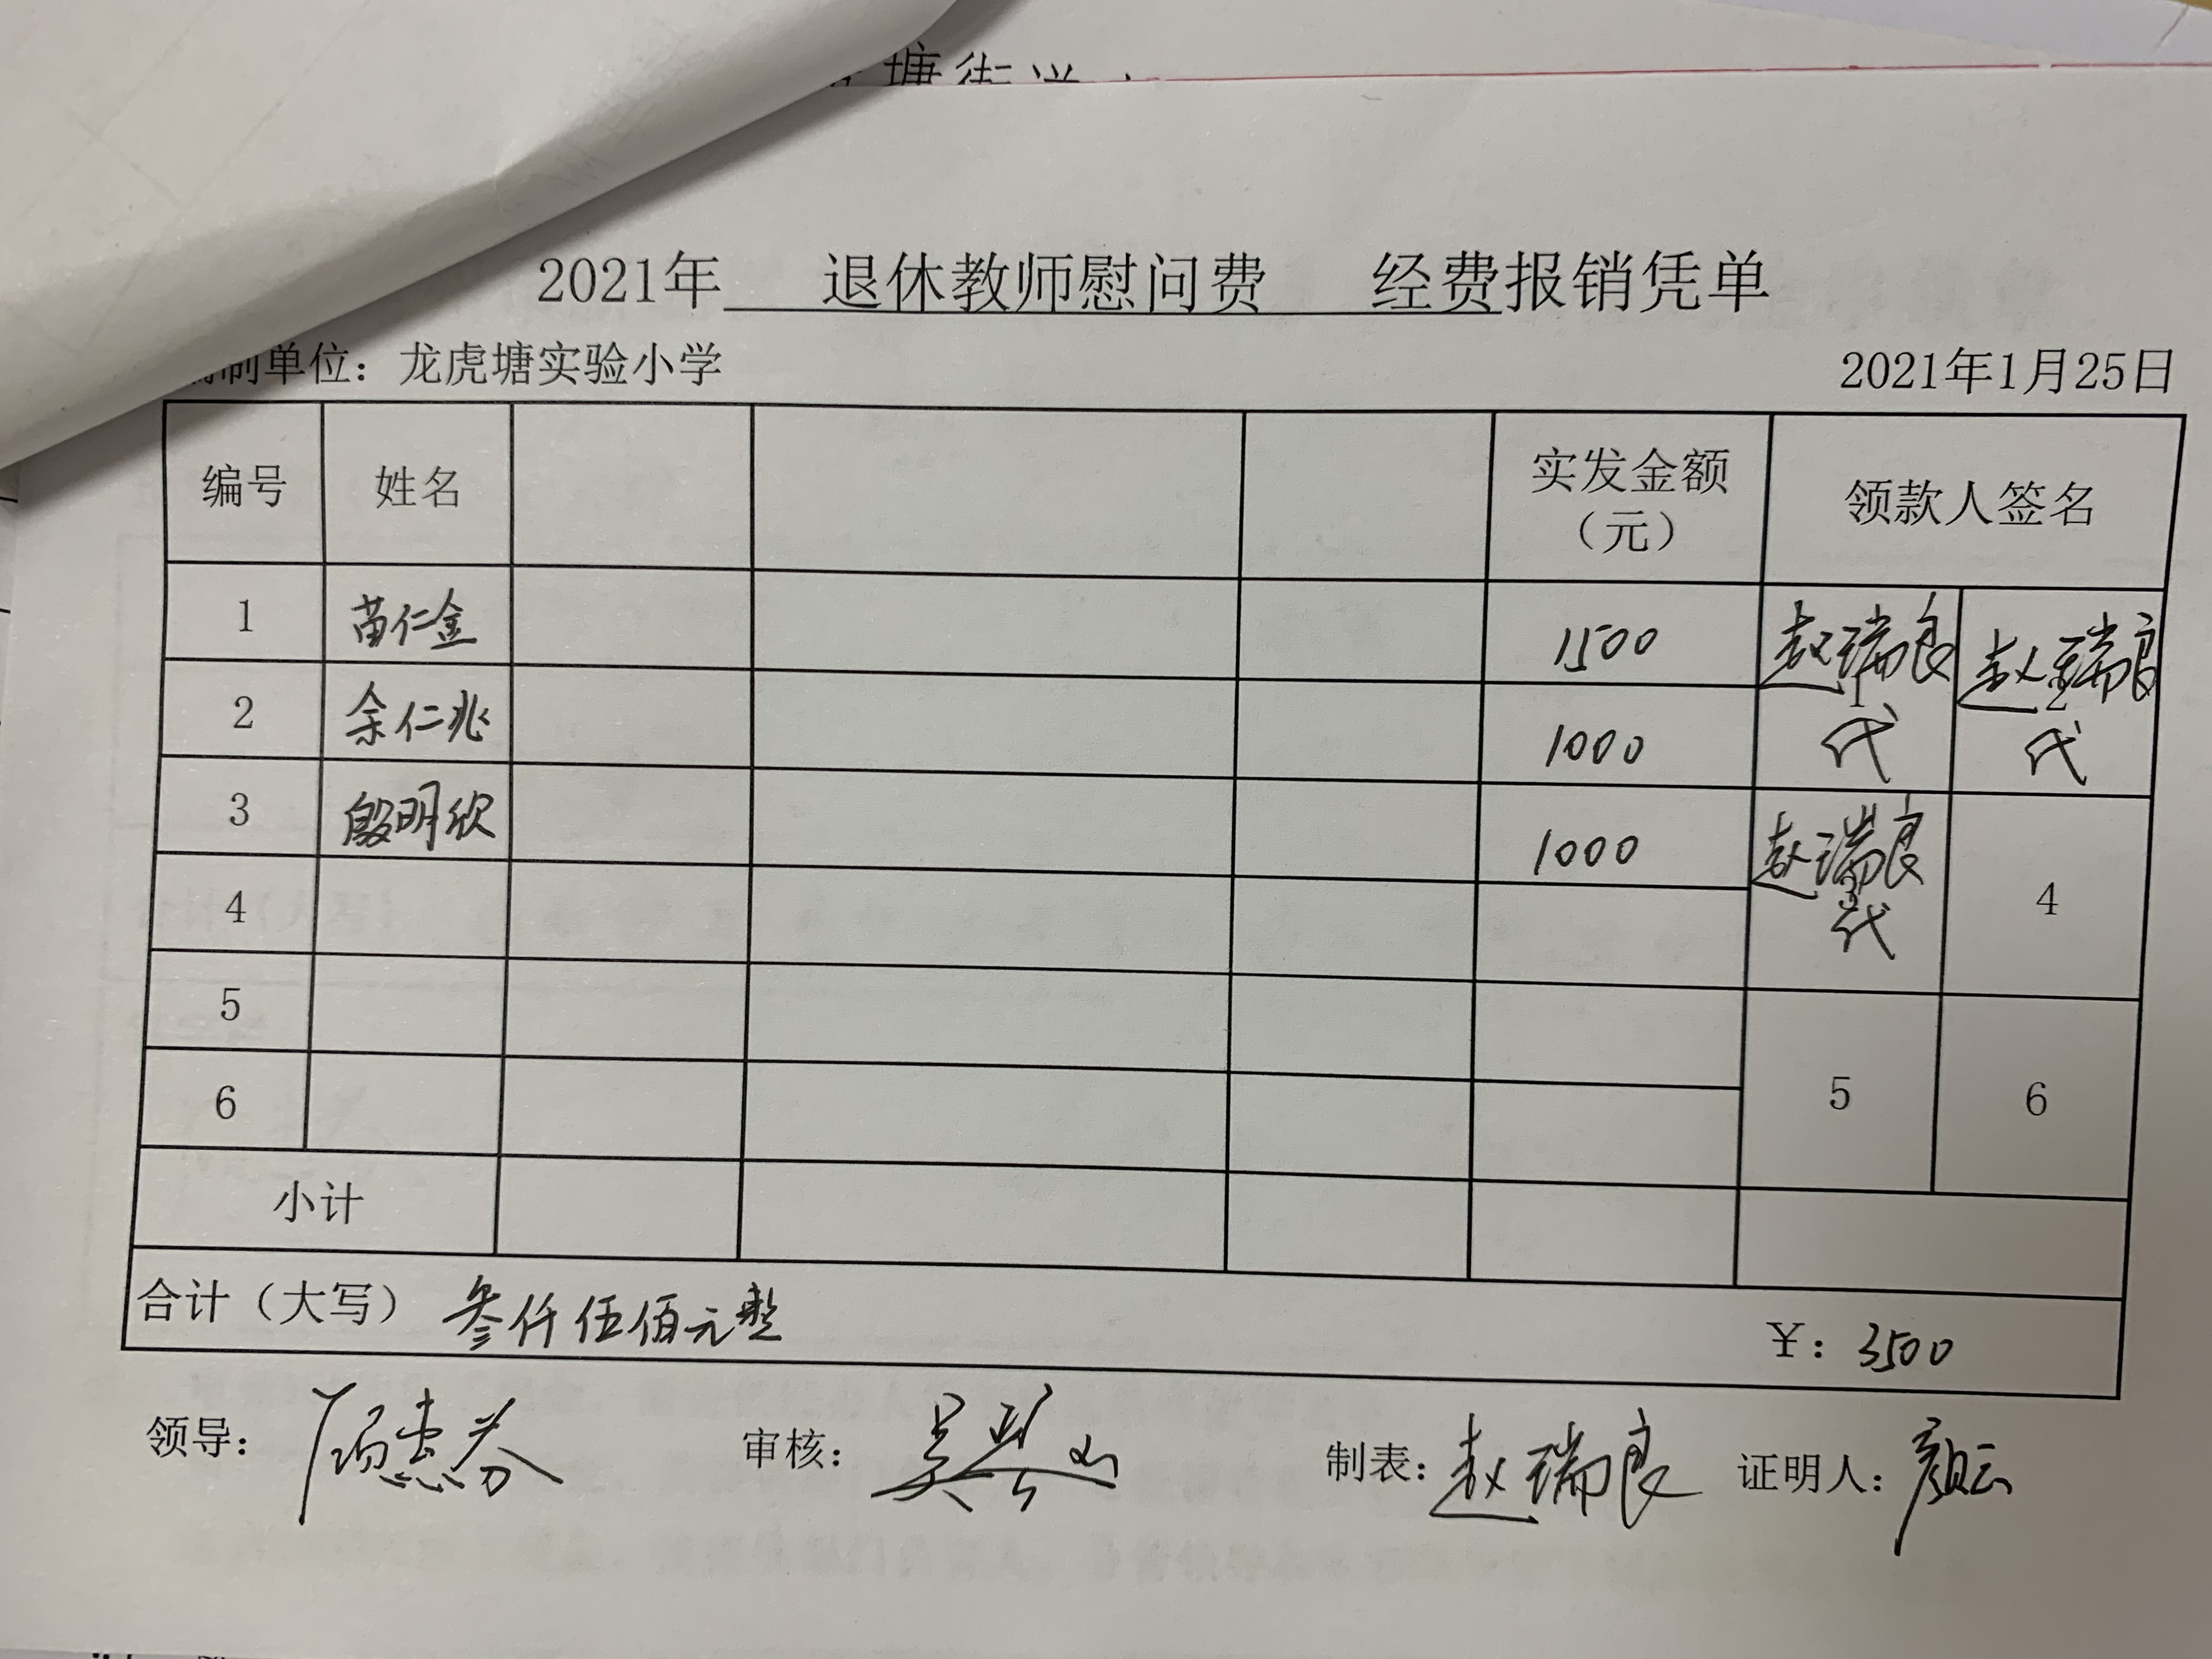 塘街道
2021年 退休教师慰问费 经费报销凭单
编制单位：龙虎塘实验小学 2021年1月25日
编号 姓名 实发金额（元） 领款人签名
1 苗仁金 1500 赵瑞良代 1 赵瑞良代 2
2 余仁兆 1000
3 殷明欣 1000 赵瑞良代 3 4
4
5 5 6
6
小计
合计（大写） 叁仟伍佰元整 ￥：3500
领导： 顾惠芬 审核： 吴 制表： 赵瑞良 证明人： 颜云